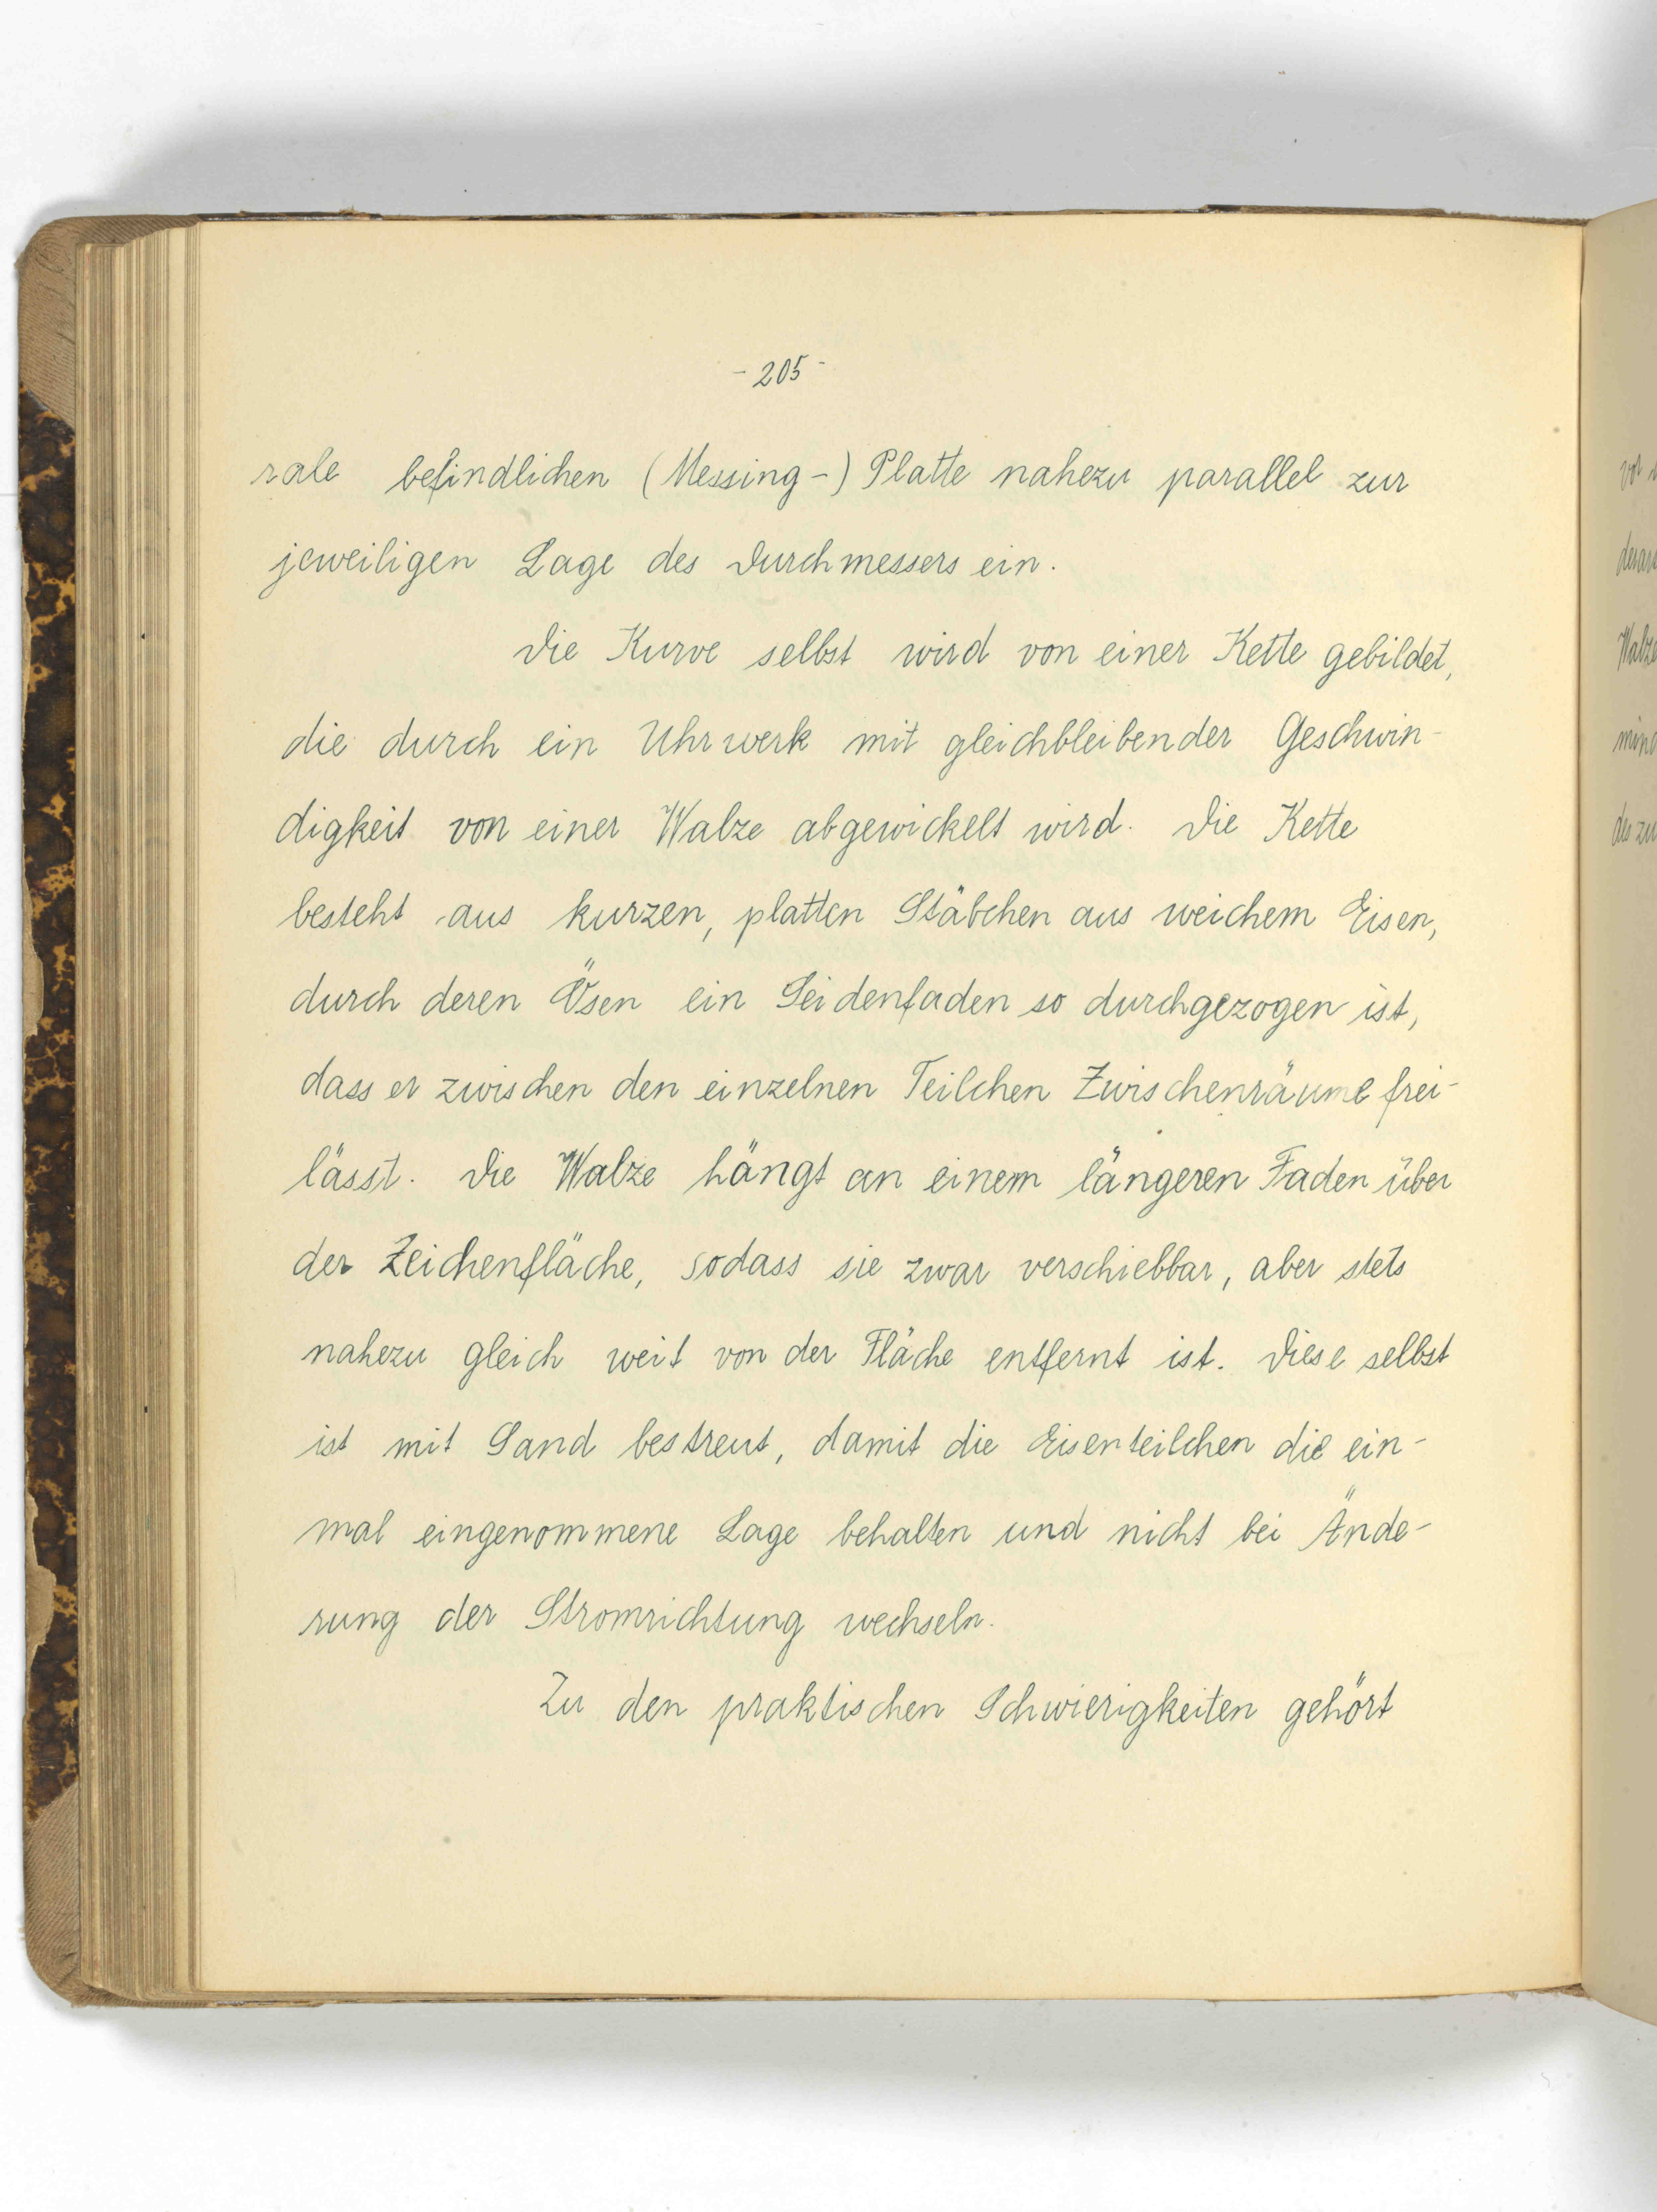 - 205 -
rale befindlichen (Messing-) Platte nahezu parallel zur
jeweiligen Lage des Durchmessers ein.
Die Kurve selbst wird von einer Kette gebildet,
die durch ein Uhrwerk mit gleichbleibender Geschwin-
digkeit von einer Walze abgewickelt wird. Die Kette
besteht aus kurzen, platten Stäbchen aus weichem Eisen,
durch deren Ösen ein Seidenfaden so durchgezogen ist,
dass er zwischen den einzelnen Teilchen Zwischenräume frei-
lässt. Die Walze hängt an einem längeren Faden über
der Zeichenfläche, sodass sie zwar verschiebbar, aber stets
nahezu gleich weit von der Fläche entfernt ist. Diese selbst
ist mit Sand bestreut, damit die Eisenteilchen die ein-
mal eingenommene Lage behalten und nicht bei Ände-
rung der Stromrichtung wechseln.
Zu den praktischen Schwierigkeiten gehört
vor
Walze
des zu